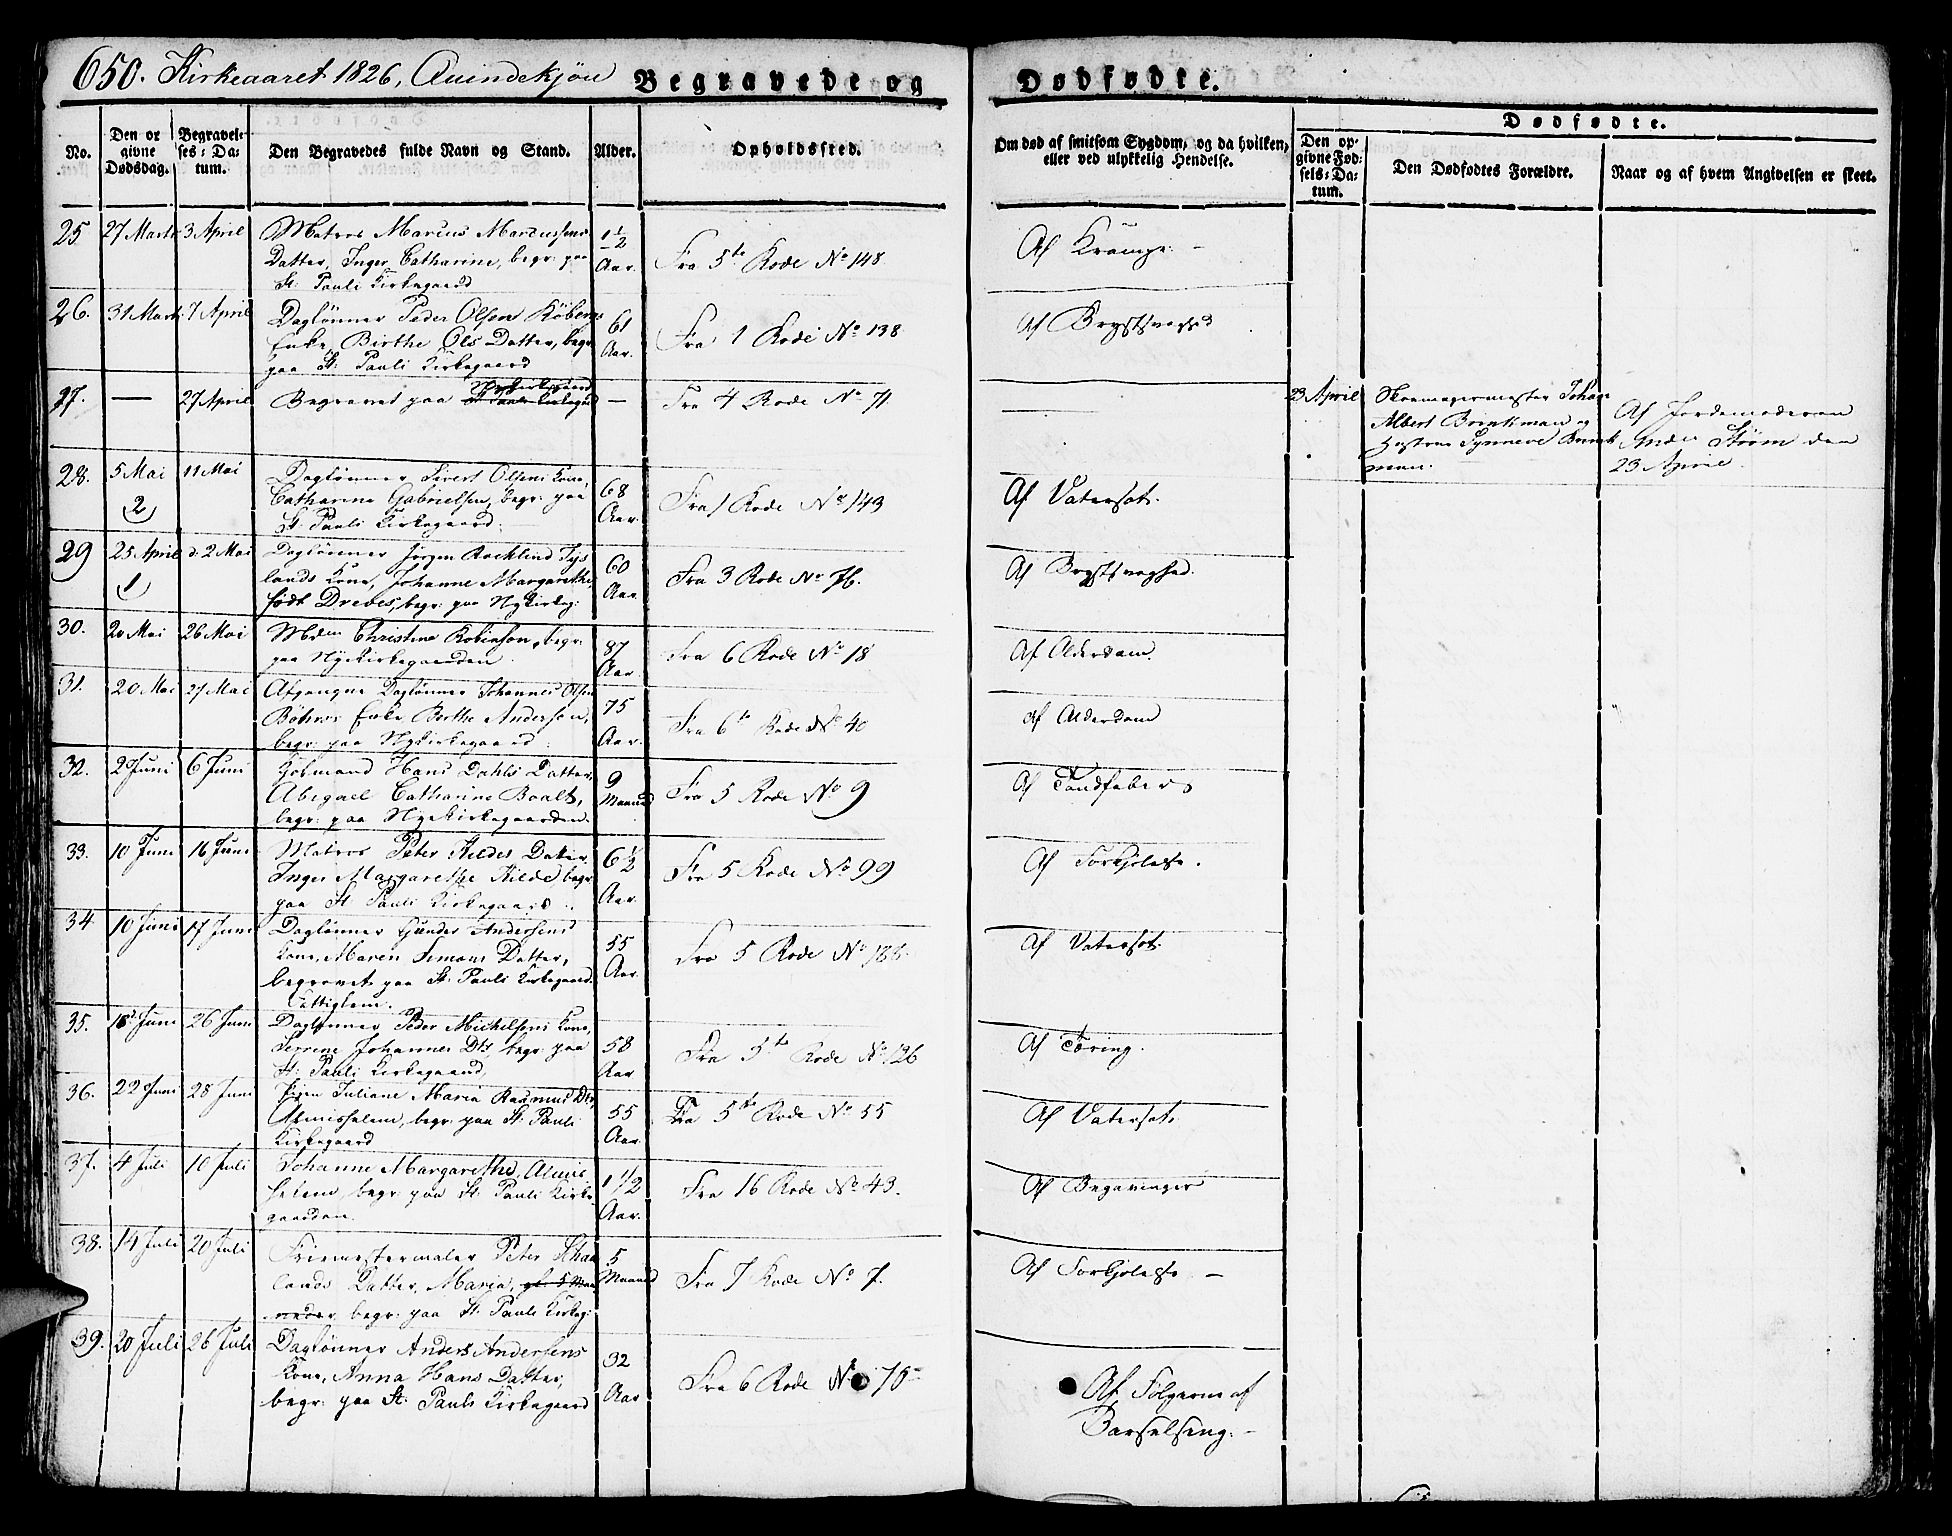 650. Kirkeaaret 1826, Qvindekjøn Begravede og Dødfødte.
No.
Den opgivne Dødsdag.
Begravelses-Datum.
Den Begravedes fulde Navn og Stand.
Alder.
Opholdssted.
Om død af smitsom Sygdom, og da hvilken, eller ved ulykkelig Hendelse.
Dødfødte.
Den opgivne Fødsels-Datum.
Den Dødfødtes Forældre.
Naar og af hvem Angivelsen er skeet.
25 27 Marts 3 April Matros Marcus Marcussens 1 1/2
Datter, Inger Catharine, begr: paa Aar. Fra 5te Rode No 148 Af Krampe. –
St: Pauli Kirkegaard
26. 31 Marts 7 April Daglønner Peder Olsen 61
Enke, Birthe Ols Datter, begr Aar. Fra 1 Rode No 138 Af Brystsvaghed
paa St. Pauli Kirkegaard
27. — 27 April Begravet paa Nykirkegaard — Fra 4 Rode No 71 23 April Skomagermester Johan
Albert Brinkman og
Hustrue Synneve Brinkman.
Af Jordemoderen
Støm den
23 April.
28. 5 Mai 11 Mai Daglønner Sivert Olsens Kone,
2 Catharina Gabrielsen, begr: paa 68 Aar. Fra 1 Rode No 143 Af Vatersot.
St. Pauli Kirkegaard.
29 25 April d. 2 Mai Daglønner Jørgen Tys
1 lands Kone, Johanne Margarethe, 60 Aar Fra 3 Rode No 76. Af Brystsvaghed.
født Dreves, begr: paa Nykirkeg:
30. 20 Mai 26 Mai Mdm Christine Robinson, begr:
paa Nyekirkegaarden. 87 Aar. Fra 6 Rode No 18 Af Alderdom.
31. 20 Mai 27 Mai Afgangne Daglønner Johannes Olsen
Enke Berthe Andersen, 75 Aar. Fra 6te Rode No 40 Af Alderdom
begr: paa Nykirkegaard.
32. 2 Juni 6 Juni Kjøbmand Hans Dahls Datter, 9
Abigael Catharine Boalt, Maaned Fra 5 Rode No 9 Af Tandfeber
begr: paa Nyekirkegaarden.
33. 10 Juni 16 Juni Matros Peter Hildes Datter, 6 1/2
Inger Margarethe Hilde, begr Aar. Fra 5 Rode No 99 Af Forkjølelse.
paa St Pauli Kirkegaard
34 10 Juni 17 Juni Dagløner Gunder Andersens
Kone, Maren Simons Datter, 55 Aar. Fra 5 Rode No Af Vatersot.
begravet paa St: Pauli Kirkegaard.
Fattiglem.
35. Juni 26 Juni Daglønner Peder Michelsens Kone,
Serrine Johannes Dtr begr: paa 58 Aar Fra 5te Rode No 126 Af Tæring.
St. Pauli Kirkegaard
36. 22 Juni 28 Juni Pigen Juliane Maria Rasmus Dtr,
Almisselem, begr: paa St. Pauli 55 Aar. Fra 5te Rode No 55 Af Vatersot.
Kirkegaard
37. 4 Juli 10 Juli Johanne Margarethe, Almis
selem, begr: paa St. Pauli Kirke 1 1/2 Aar. Fra 16 Rode No 43. Af
gaarden.
38. 14 Juli 20 Juli Friemestermaler Peter 5
lands Datter, Maria, gl. 5 Maa Maaned Fra 7 Rode No 7. Af Forkjølelse –
neder begr: paa St. Pauli Kirkeg:
39. 20 Juli 26 Juli Dagløner Anders Andersens 32
Kone, Anna Hans Datter, Aar Fra 6 Rode No Af Følgerne af
begr: paa St. Pauls Kirkegaard Barselseng. –